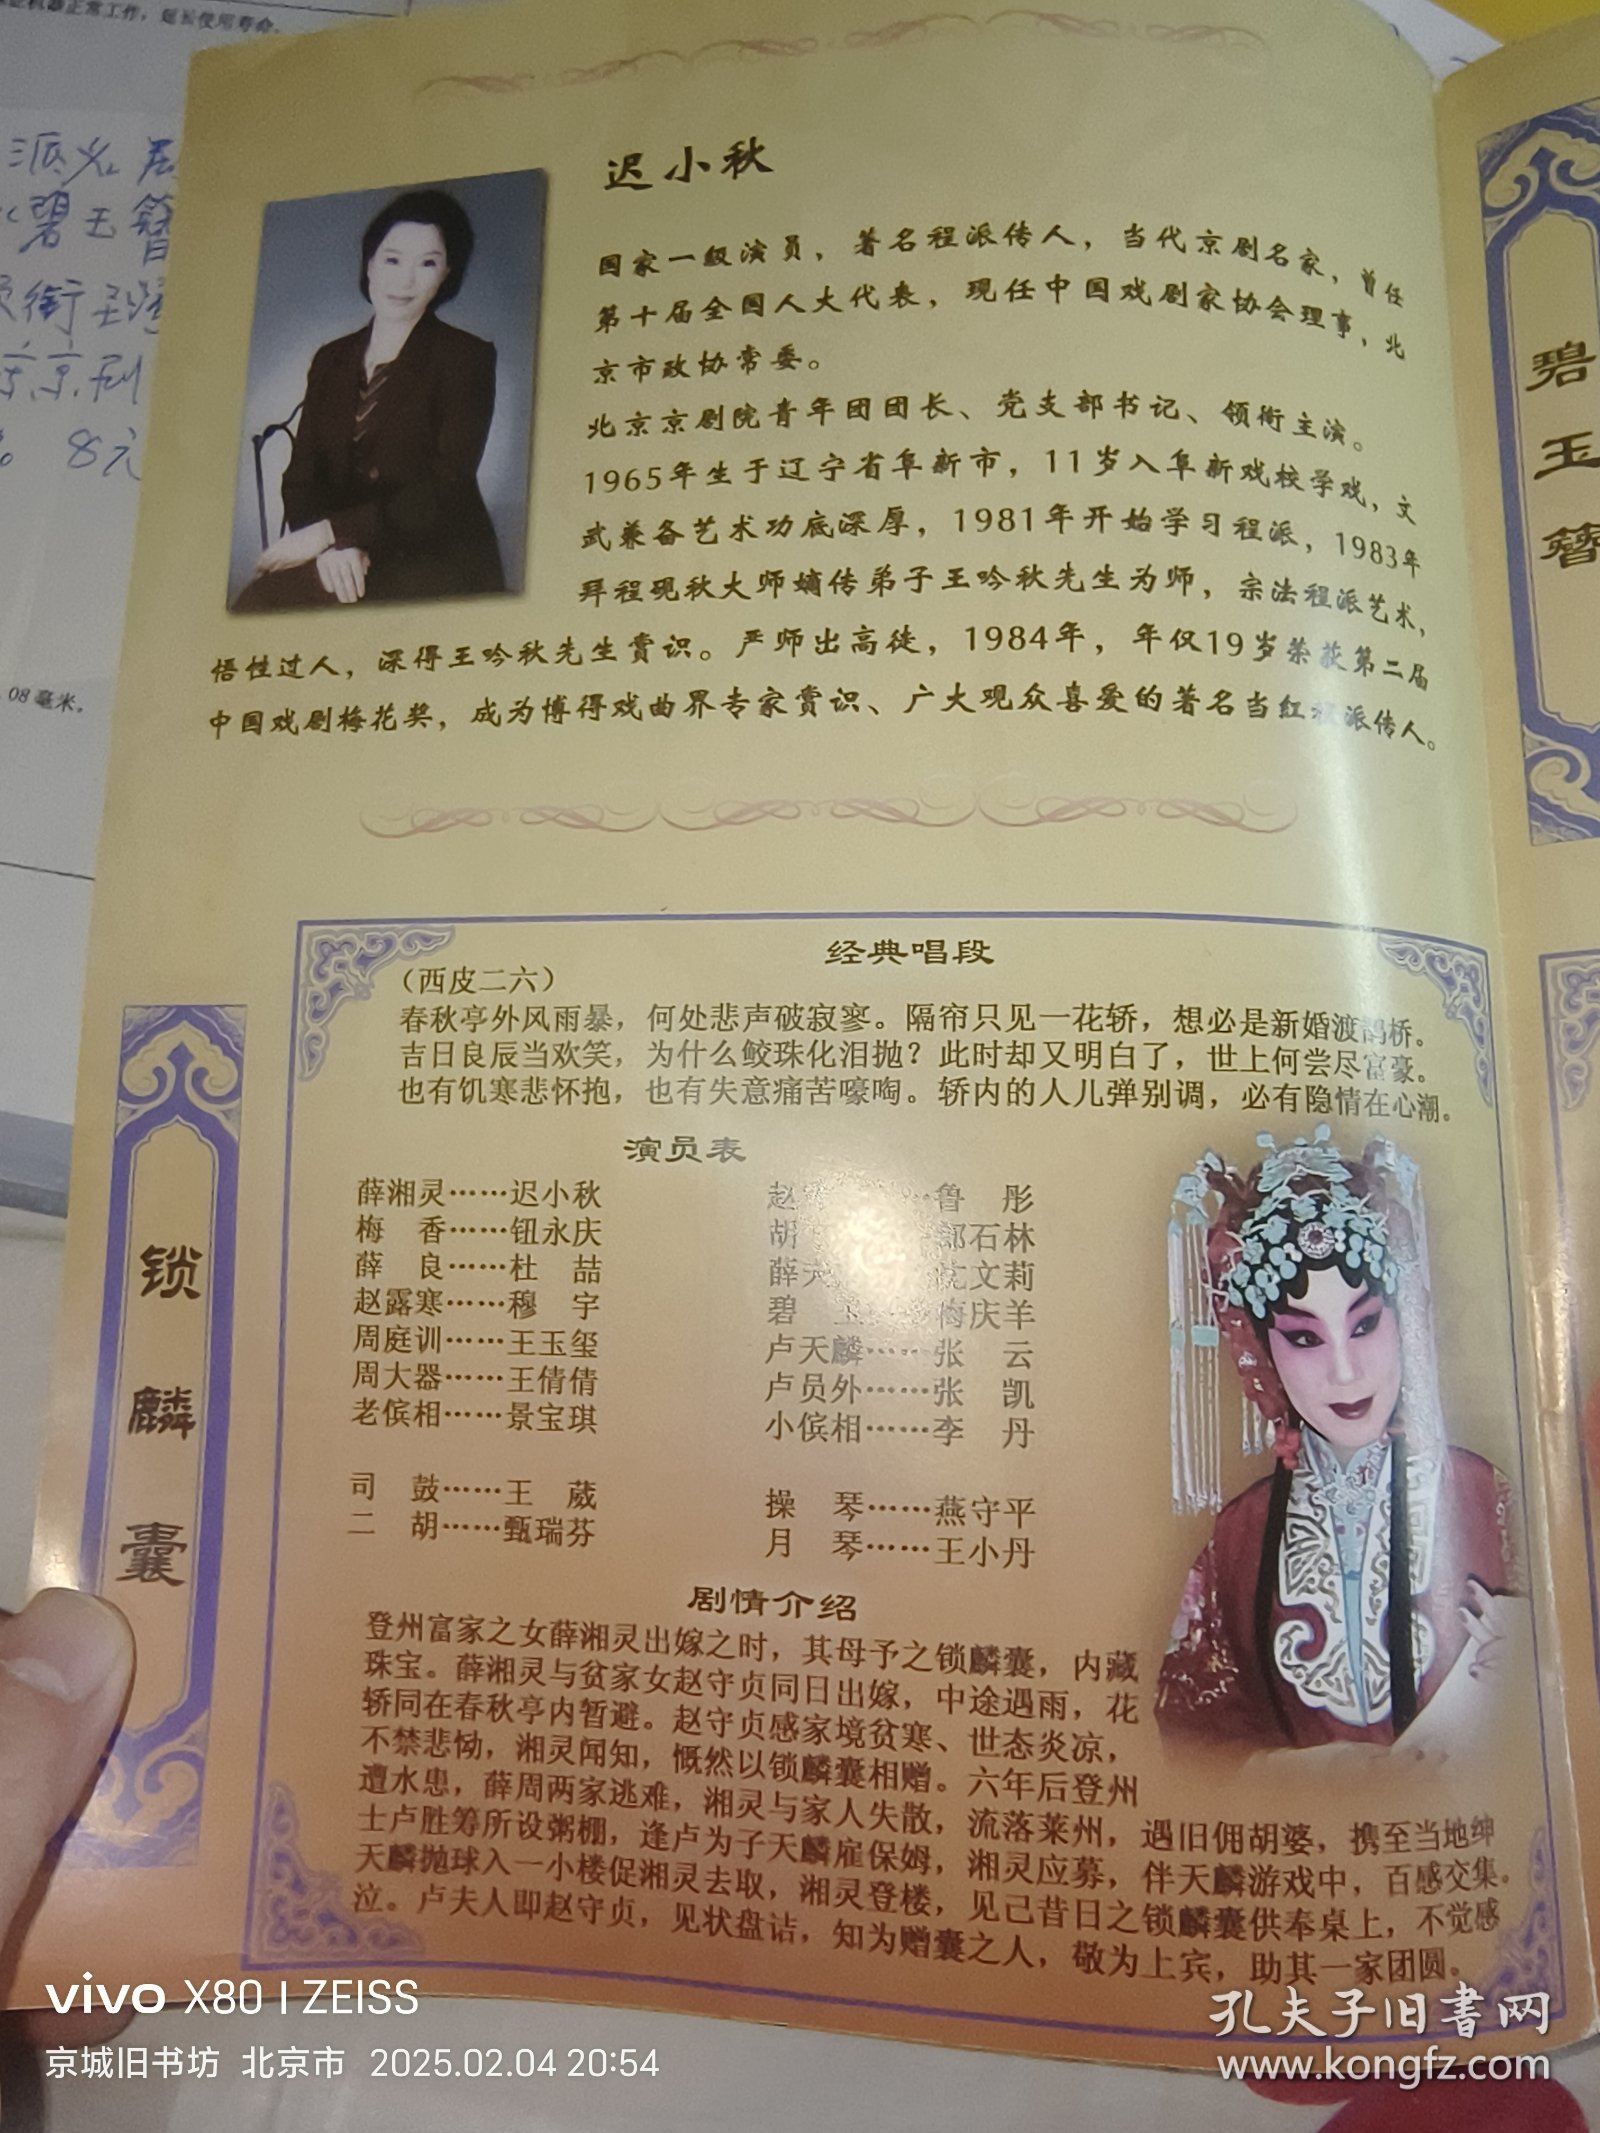 保证机器正常工作，延长使用寿命。
派必居
碧玉簪
领衔主演
京京剧
8元
08毫米。
迟小秋
国家一级演员，著名程派传人，当代京剧名家，曾任
第十届全国人大代表，现任中国戏剧家协会理事，北
京市政协常委。
北京京剧院青年团团长、党支部书记、领衔主演。
1965年生于辽宁省阜新市，11岁入阜新戏校学戏，文
武兼备艺术功底深厚，1981年开始学习程派，1983年
拜程砚秋大师嫡传弟子王吟秋先生为师，宗法程派艺术，
悟性过人，深得王吟秋先生赏识。严师出高徒，1984年，年仅19岁荣获第二届
中国戏剧梅花奖，成为博得戏曲界专家赏识、广大观众喜爱的著名当红程派传人。
碧玉簪
锁麟囊
经典唱段
（西皮二六）
春秋亭外风雨暴，何处悲声破寂寥。隔帘只见一花轿，想必是新婚渡鹊桥。
吉日良辰当欢笑，为什么鲛珠化泪抛？此时却又明白了，世上何尝尽富豪。
也有饥寒悲怀抱，也有失意痛苦嚎啕。轿内的人儿弹别调，必有隐情在心潮。
演员表
薛湘灵……迟小秋
梅 香……钮永庆
薛 良……杜 喆
赵露寒……穆 宇
周庭训……王玉玺
周大器……王倩倩
老傧相……景宝琪
赵 …鲁 彤
胡 石林
薛 文莉
碧 玉 梅庆羊
卢天麟……张 云
卢员外……张 凯
小傧相……李 丹
司 鼓……王 葳
二 胡……甄瑞芬
操 琴……燕守平
月 琴……王小丹
剧情介绍
登州富家之女薛湘灵出嫁之时，其母予之锁麟囊，内藏
珠宝。薛湘灵与贫家女赵守贞同日出嫁，中途遇雨，花
轿同在春秋亭内暂避。赵守贞感家境贫寒、世态炎凉，
不禁悲恸，湘灵闻知，慨然以锁麟囊相赠。六年后登州
遭水患，薛周两家逃难，湘灵与家人失散，流落莱州，遇旧佣胡婆，携至当地绅
士卢胜筹所设粥棚，逢卢为子天麟雇保姆，湘灵应募，伴天麟游戏中，百感交集。
天麟抛球入一小楼促湘灵去取，湘灵登楼，见己昔日之锁麟囊供奉桌上，不觉感
泣。卢夫人即赵守贞，见状盘诘，知为赠囊之人，敬为上宾，助其一家团圆。
vivo X80 | ZEISS
京城旧书坊 北京市 2025.02.04 20:54
孔夫子旧书网
www.kongfz.com